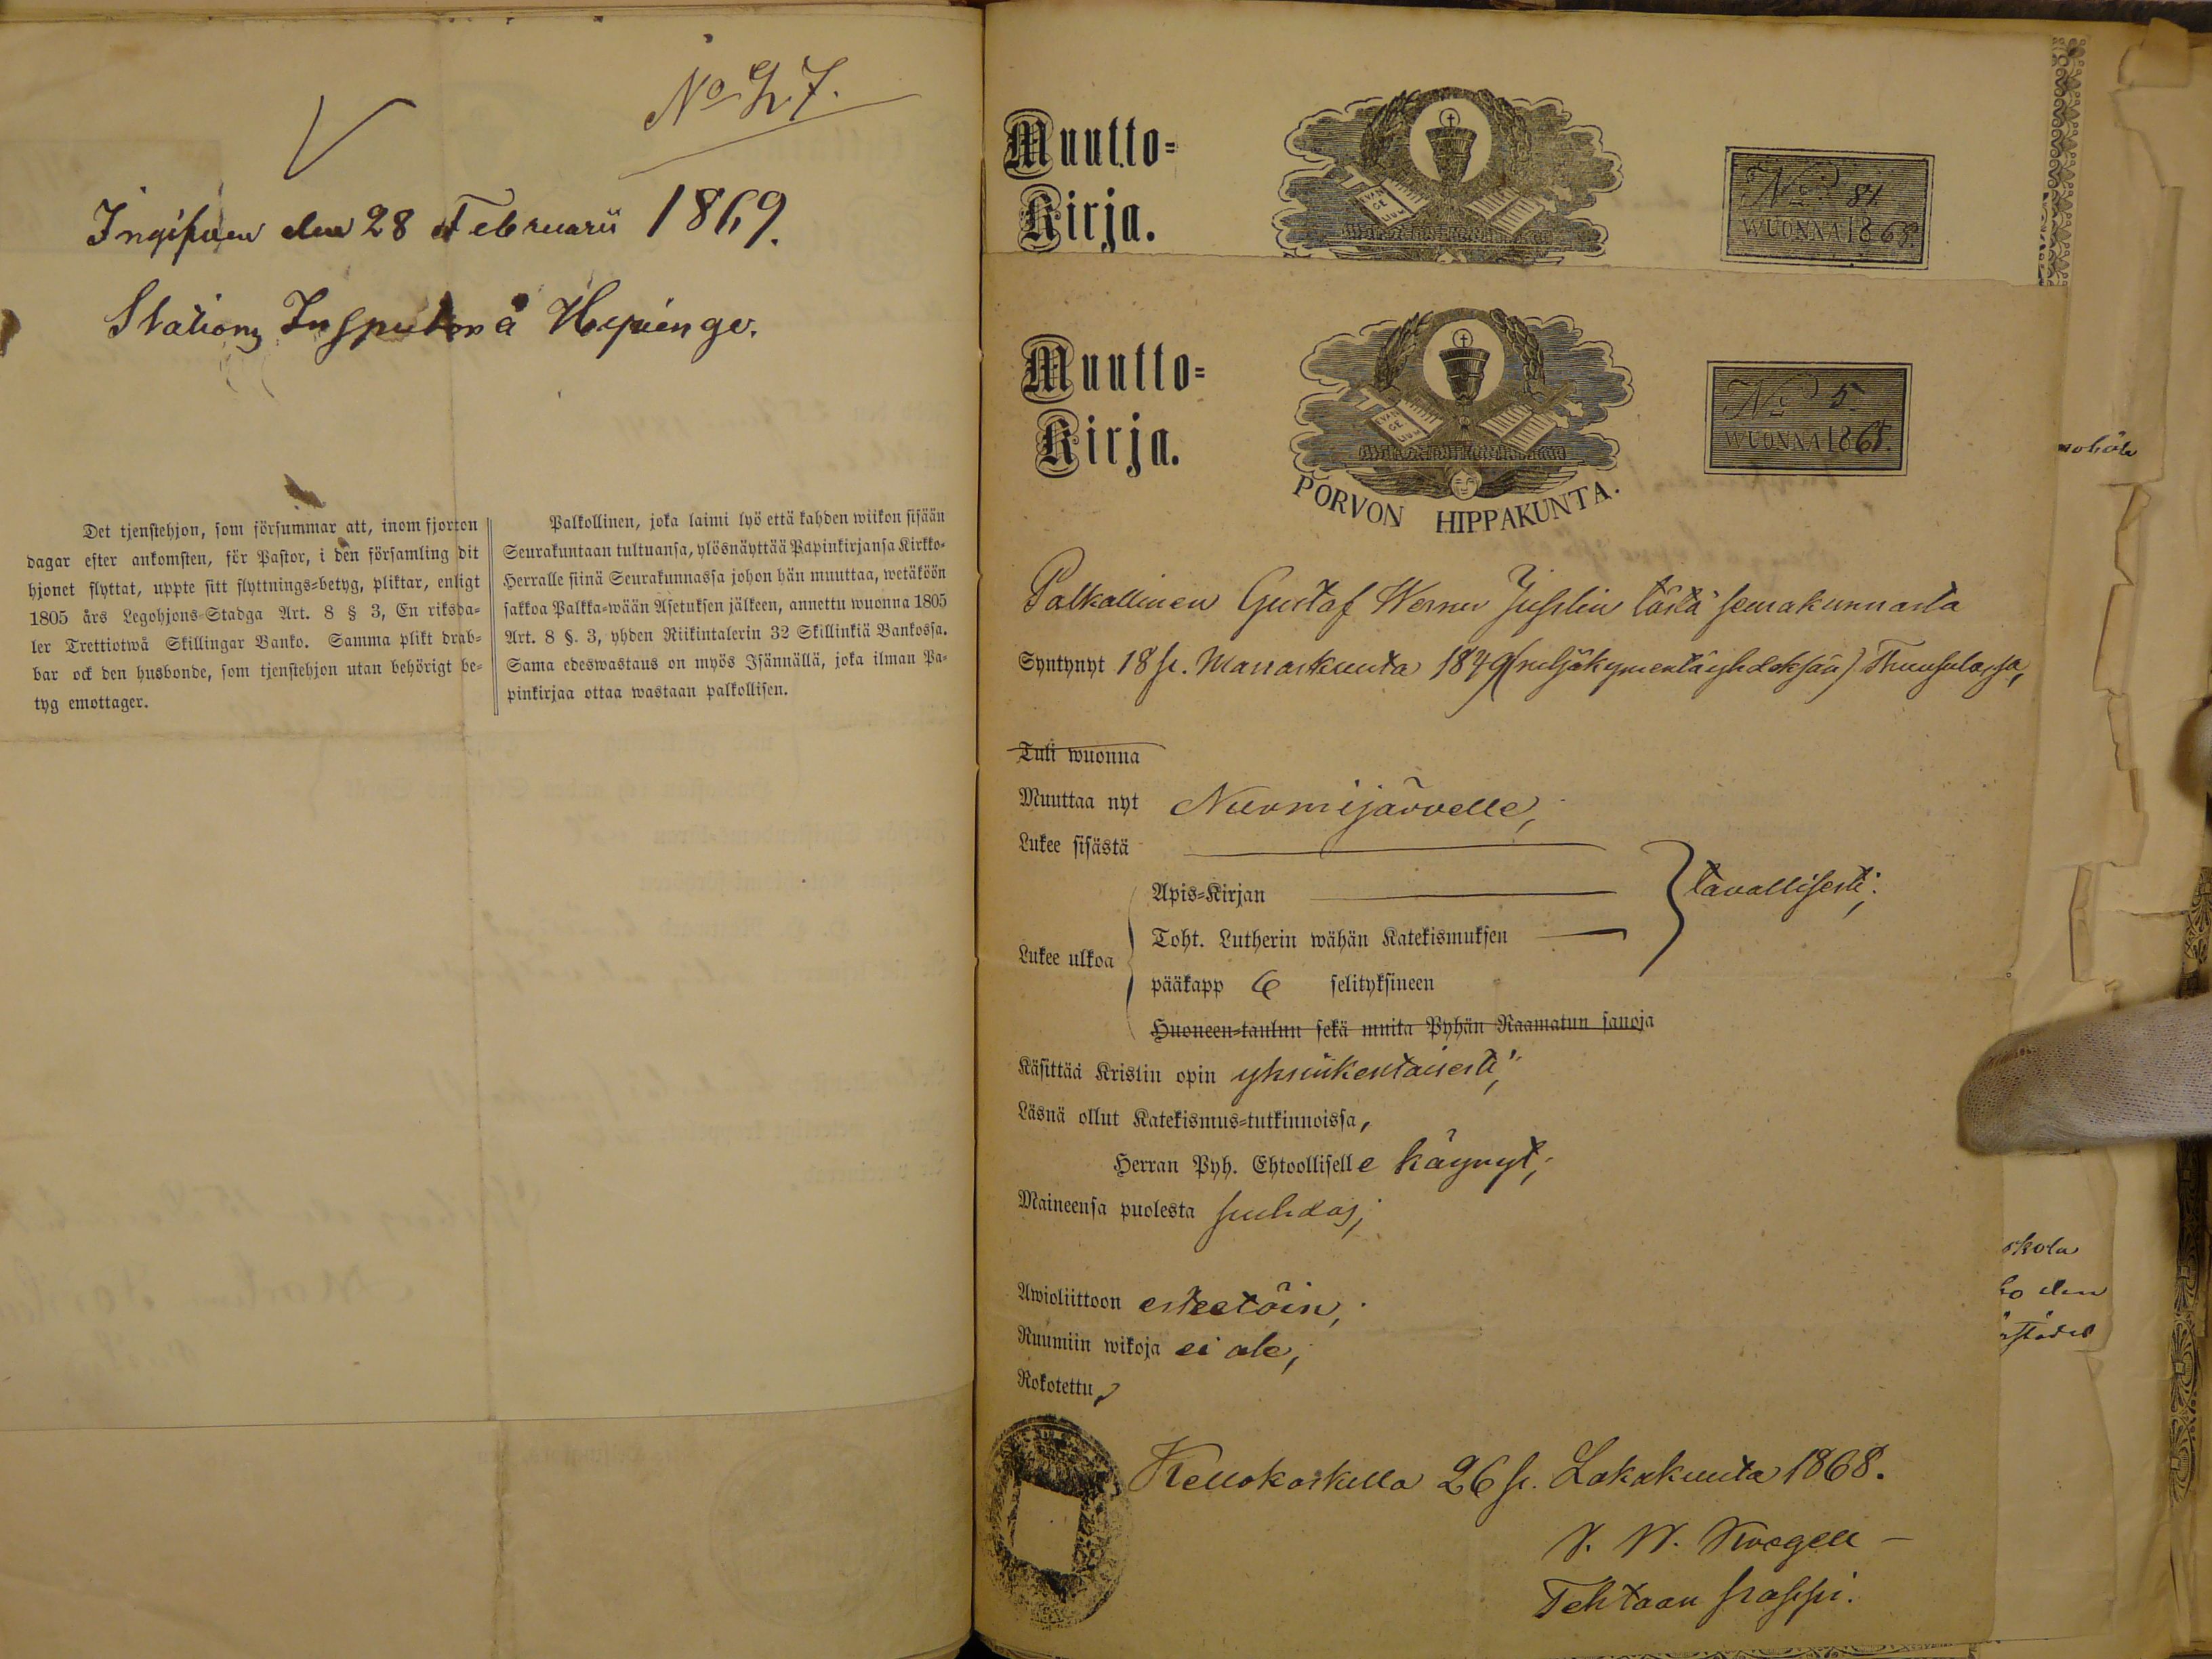 No 27.
Ingifven den 28 Februarii 1869.
Stations Inspektor å Hyvinge.
Det tjenstehjon, som försummar att, inom fjorton
dagar efter ankomsten, för Pastor, i den församling dit
hjonet flyttat, uppte sitt flyttnings=betyg, pliktar, enligt
1805 års Legohjons=Stadga Art. 8 § 3, En riksda=
ler Trettiotwå Skillingar Banko. Samma plikt drab=
bar ock den husbonde, som tjenstehjon utan behörigt be=
tyg emottager.
Palkollinen, joka laimi lyö että kahden wiikon sisään
Seurakuntaan tultuansa, ylösnäyttää Papinkirjansa Kirkko=
Herralle siinä Seurakunnassa johon hän muuttaa, wetäköön
sakkoa Palkka=wään Asetuksen jälkeen, annettu wuonna 1805
Art. 8 §. 3, yhden Riikintalerin 32 Skillinkiä Bankossa.
Sama edeswastaus on myös Isännällä, joka ilman Pa=
pinkirjaa ottaa wastaan palkollisen.
Muutto=
Kirja.
EVAN
GE
LIUM
No 81.
WUONNA 1868.
Muutto=
Kirja.
EVAN
GE
LIUM
PORVON HIPPAKUNTA.
No 5.
WUONNA 1868.
Palkallinen Gustaf Werner Juslin tästä seurakunnasta
Syntynyt 18 p. Marraskuuta 1849 (neljäkymentäyhdeksän) Thuusulassa,
Tuli wuonna
Muuttaa nyt Nurmijärvelle,
Lukee sisästä
Lukee ulkoa
Apis=Kirjan
Toht. Lutherin wähän Katekismuksen
pääkapp 6 selityksineen
Huoneen=taulun sekä muita Pyhän Raamatun sanoja
tavallisesti;
Käsittää Kristin opin yksinkertaisesti;
Läsnä ollut Katekismus=tutkinnoissa,
Herran Pyh. Ehtoolliselle käynyt;
Maineensa puolesta puhdas;
Awioliittoon esteetöin;
Ruumiin wikoja ei ole;
Rokotettu,
Kellokoskella 26 p. Lokakuuta 1868.
Tehtaan pappi.
skola